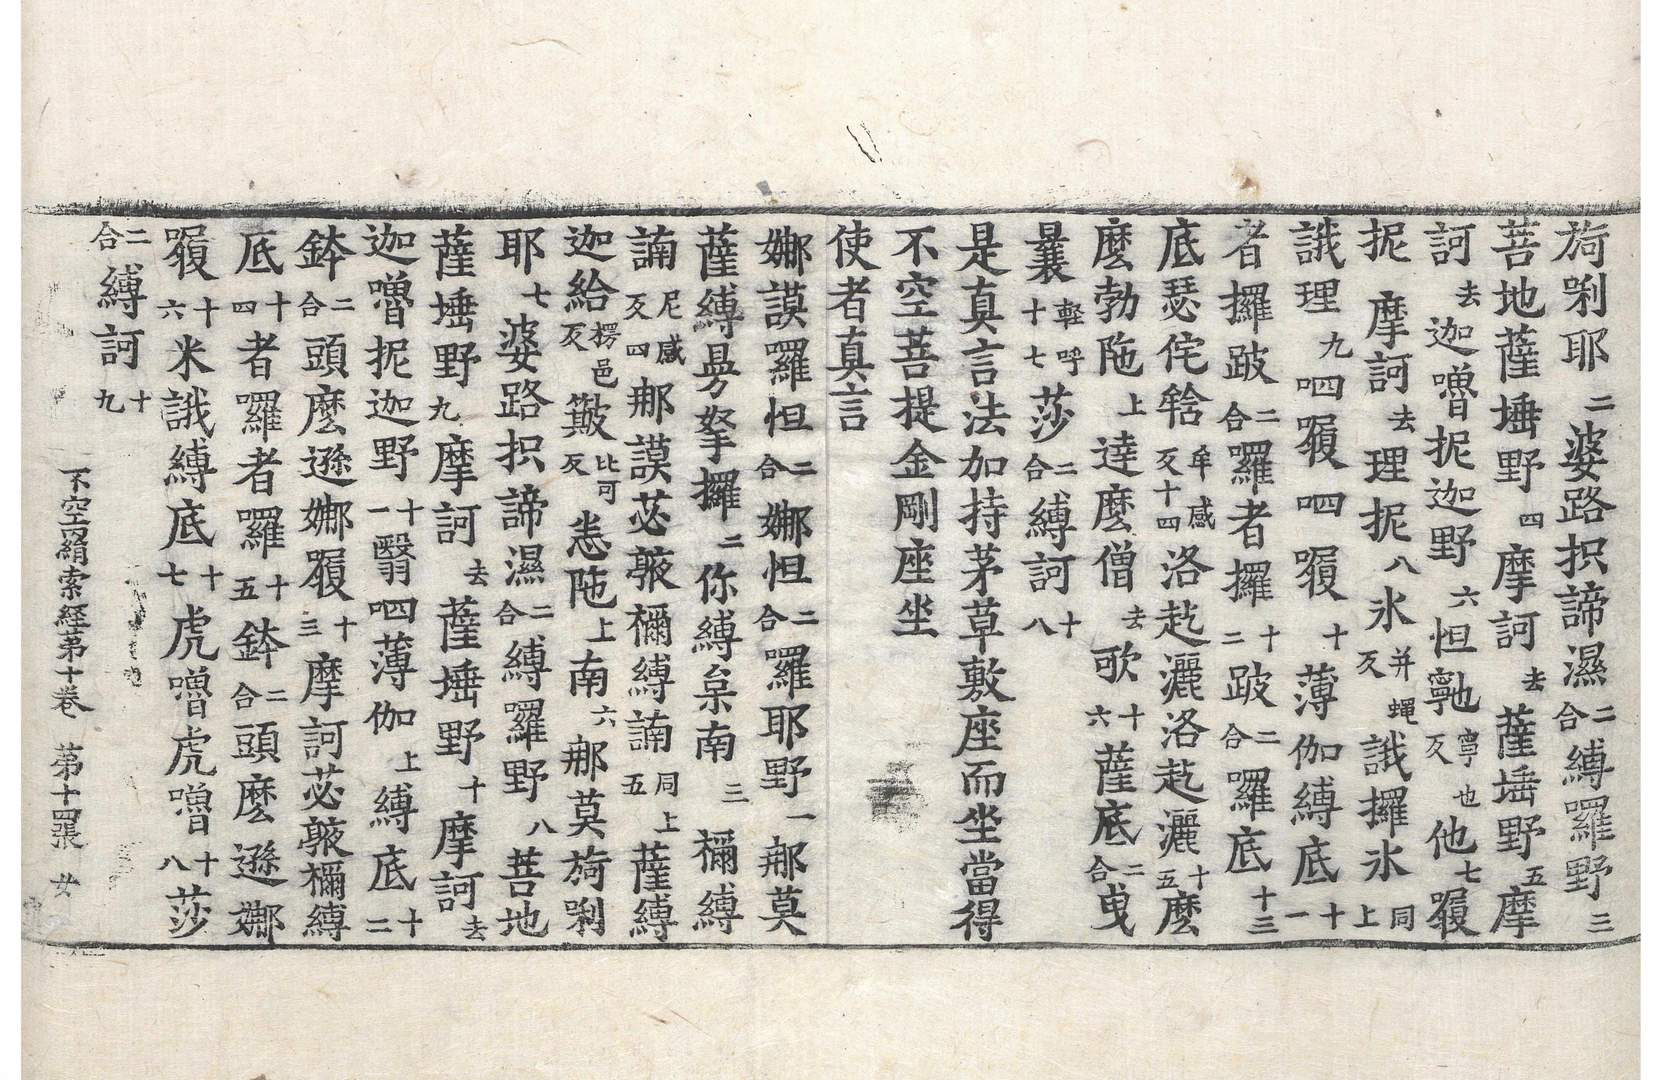 旖唎耶二婆路抧諦濕二合縛羅野三
菩地薩埵野四摩訶去薩埵野五摩
訶去迦嚕抳迦野六怛𩕳寧也反他七履
抳摩訶去理抳八氷并蝿反誐攞氷同上
誐理九呬履呬履十薄伽縛底十一
者攞跛二合囉者攞十二跛二合囉底十三
底瑟侘𤚥牟感反十四洛𧹞灑洛𧹞灑十五麼
麼勃陁上達麼僧去歌十六薩底二合曳
曩軽呼十七莎二合縛訶十八
是真言法加持茅草敷座而坐當得
不空菩提金剛座坐
使者真言
娜謨羅怛二合娜怛二合羅耶野一那莫
薩縛㝵拏攞二你縛枲南三禰縛
諵尼感反四那謨苾𨤲禰縛諵同上五薩縛
迦給楞邑反簸比可反恙陁上南六那莫旖唎
耶七婆路抧諦濕二合縛羅野八菩地
薩埵野九摩訶去薩埵野十摩訶去
迦嚕抳迦野十一翳呬薄伽上縛底十二
鉢二合頭麼遜娜履十三摩訶苾𨤲禰縛
底十四者囉者囉十五鉢二合頭麼遜娜
履十六米誐縛底十七虎嚕虎嚕十八莎
二合縛訶十九
不空羂索經第十卷　第十四張　女